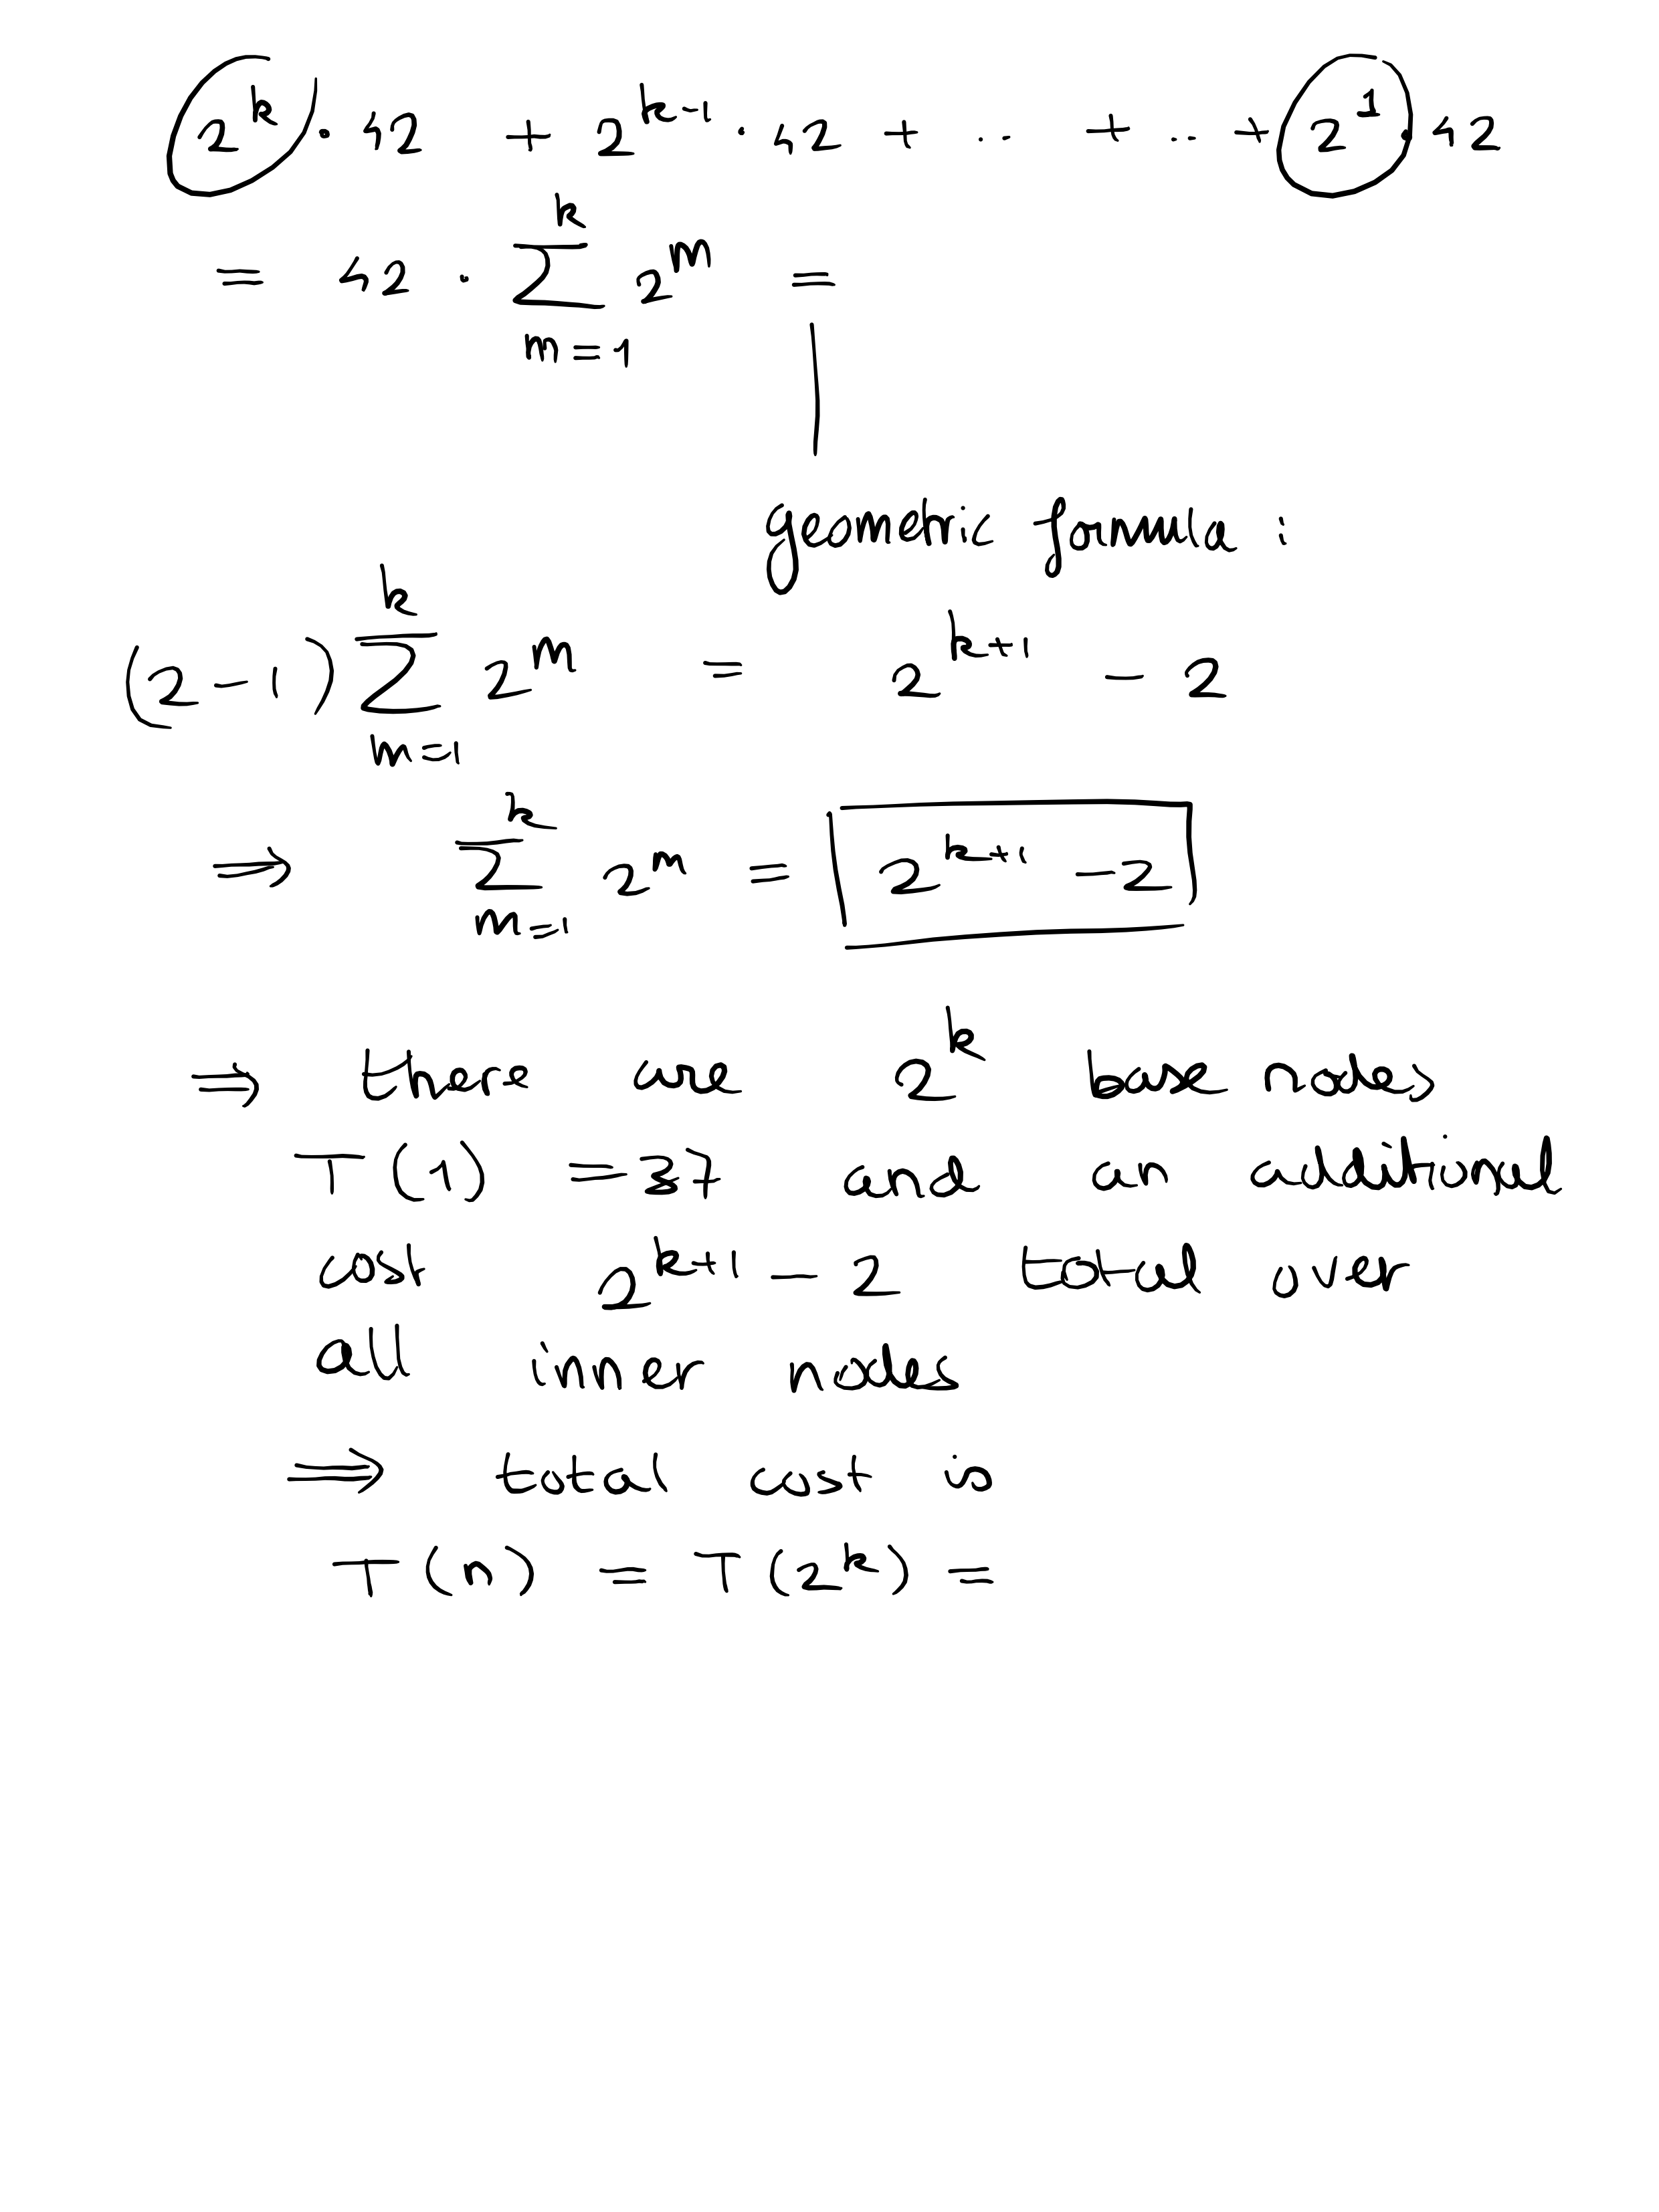 2^k · 42 + 2^{k-1} · 42 + .. + .. + 2^1 · 42
= 42 · \sum_{m=1}^{k} 2^m =
geometric formula :
(2-1) \sum_{m=1}^{k} 2^m = 2^{k+1} - 2
⇒ \sum_{m=1}^{k} 2^m = 2^{k+1} - 2
⇒ there are 2^k base nodes
T(1) = 37 and an additional
cost 2^{k+1} - 2 total over
all inner nodes
⇒ total cost is
T(n) = T(2^k) =